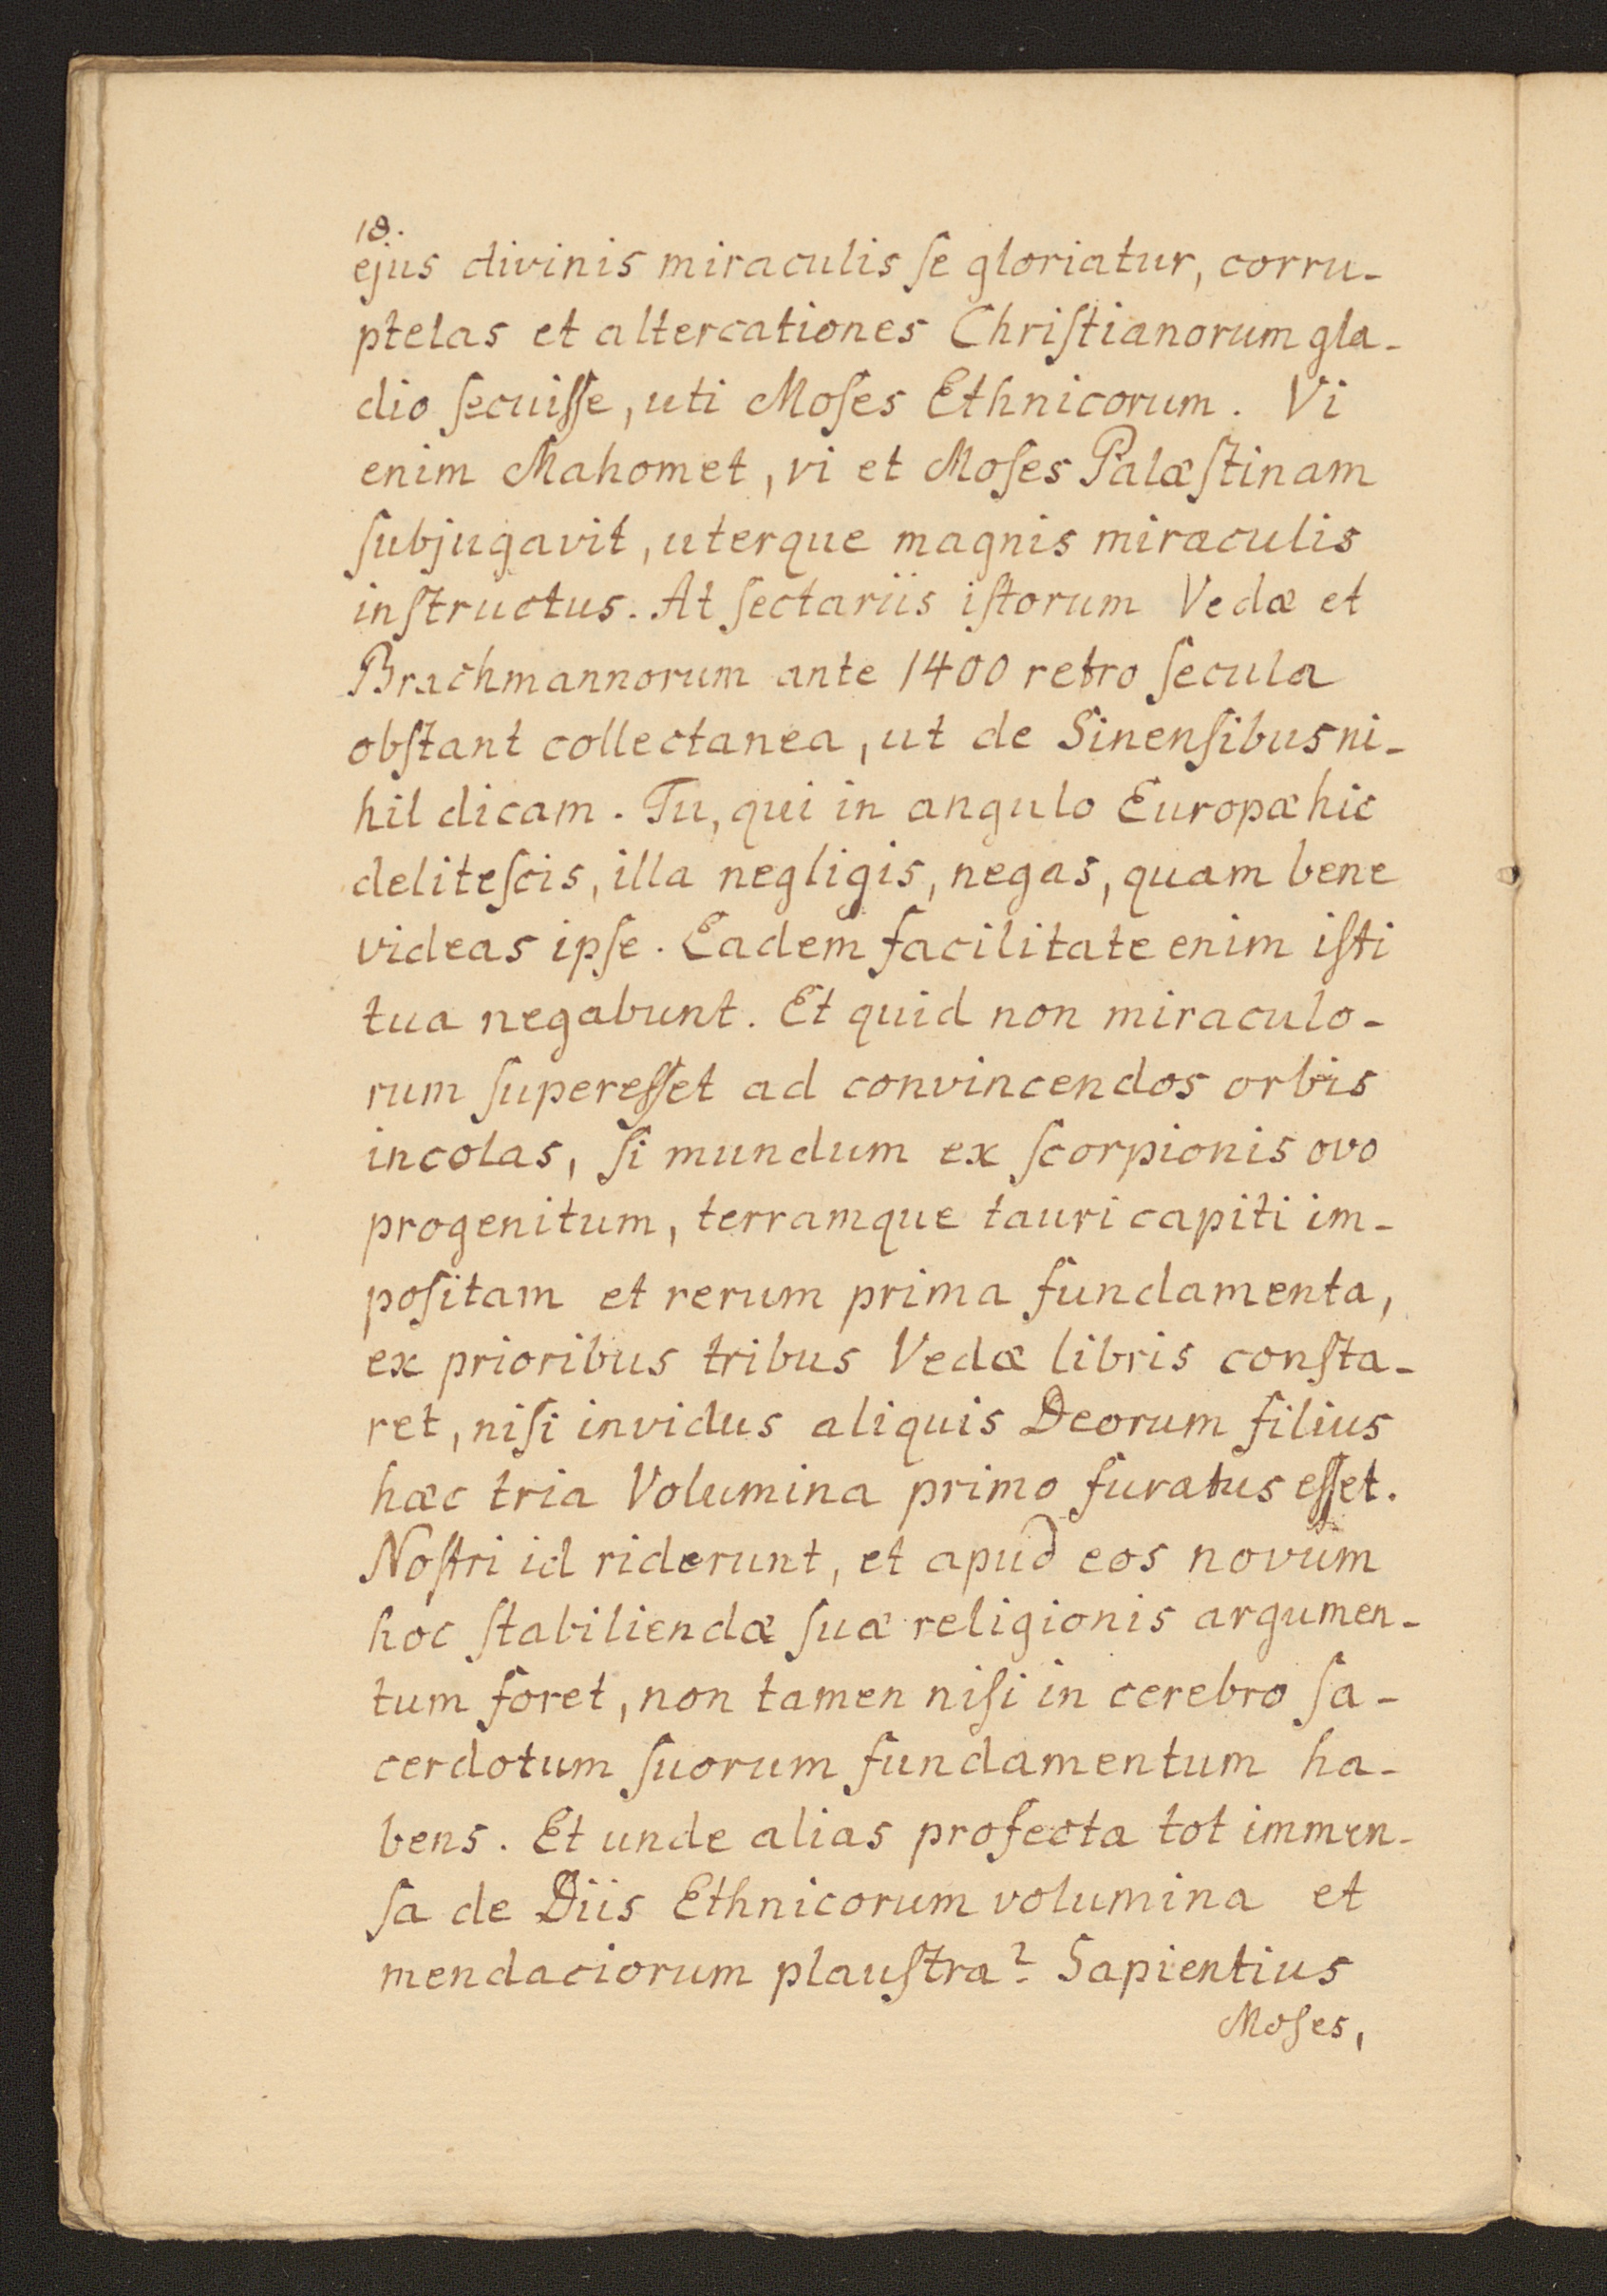 18.
ejus divinis miraculis ſe gloriatur, corru-
ptelas et altercationes Chriſtianorum gla-
dio ſecuiſſe, uti Moſes Ethnicorum. Vi
enim Mahomet, vi et Moſes Palæſtinam
ſubjugavit, uterque magnis miraculis
inſtructus. At ſectariis iſtorum Vedæ et
Brachmannorum ante 1400 retro ſecula
obſtant collectanea, ut de Sinenſibus ni-
hil dicam. Tu, qui in angulo Europæ hic
deliteſcis, illa negligis, negas, quam bene
videas ipſe. Eadem facilitate enim iſti
tua negabunt. Et quid non miraculo-
rum ſupereſſet ad convincendos orbis
incolas, ſi mundum ex ſcorpionis ovo
progenitum, terramque tauri capiti im-
poſitam et rerum prima fundamenta,
ex prioribus tribus Vedæ libris conſta-
ret, niſi invidus aliquis Deorum filius
hæc tria Volumina primo furatus eſſet.
Noſtri id riderunt, et apud eos novum
hoc ſtabiliendæ ſuæ religionis argumen-
tum foret, non tamen niſi in cerebro ſa-
cerdotum ſuorum fundamentum ha-
bens. Et unde alias profecta tot immen-
ſa de Diis Ethnicorum volumina et
mendaciorum plauſtra? Sapientius
Moſes,